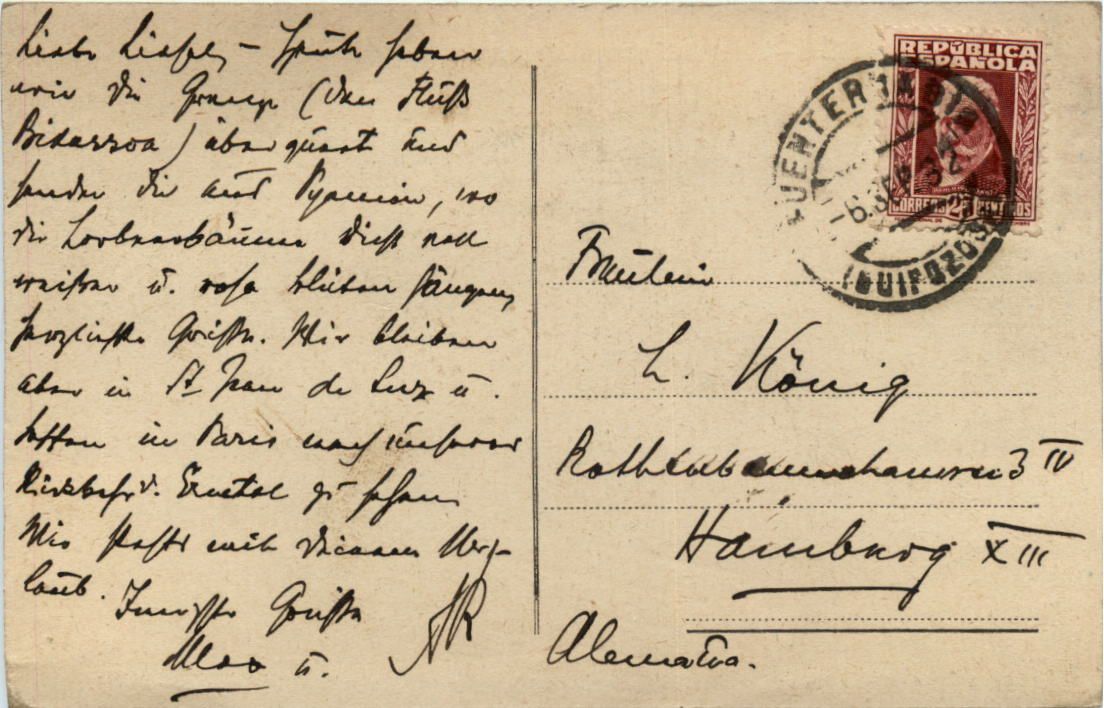 Liebe Liesel, – Heute haben
wir die Grenze (den Fluß
Bidassoa) überquert und
senden dir aus Spanien, wo
die Lorbeerbäume dicht voll
weißer u. rosa Blüten hängen,
herzlichste Grüße. Wir bleiben
aber in St Jean de Luz u.
hoffen in Paris nach unserer
Rückkehr d. zu sehen
Wie steht mit deinem Ur-
laub. Innigste Grüße
u.
REPÚBLICA
ESPAÑOLA
CORREOS 25 CENTIMOS
FUENTERRABIA
-6.SEP.32
(GUIPUZCOA)
Fräulein
L. König
Rothenbaumchaussee 3 IV
Hamburg XIII
Alemania.